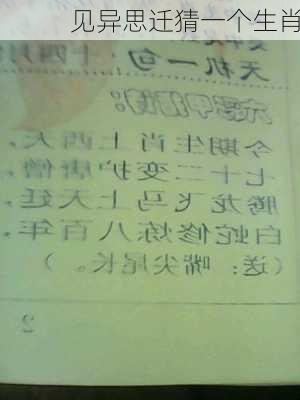 见异思迁猜一个生肖
天机一句
今期生肖上西天，
七十二变护唐僧，
腾龙飞马上天廷，
白蛇修炼八百年，
（送：嘴尖尾长。）
2